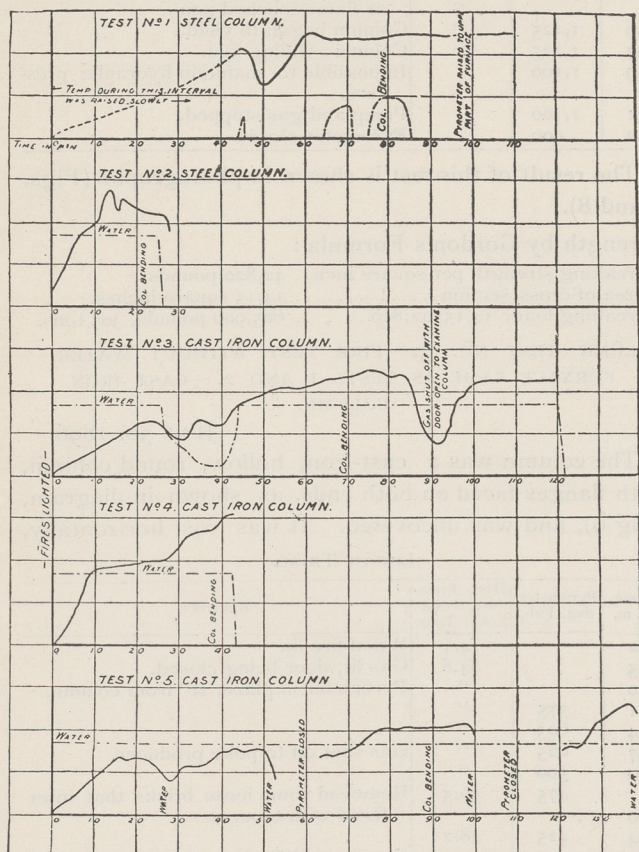 TEST Nº1 STEEL COLUMN.
TEMP DURING THIS INTERVAL
WAS RAISED SLOWLY
COL. BENDING
PYROMETER RAISED TO UPPER
PART OF FURNACE
TIME IN MIN
10 20 30 40 50 60 70 80 90 100 110
TEST Nº2, STEEL COLUMN.
WATER
COL BENDING
0 10 20 30
TEST Nº3. CAST IRON COLUMN.
WATER
COL BENDING
GAS SHUT OFF WITH
DOOR OPEN TO EXAMINE
COLUMN
0 10 20 30 40 50 60 70 80 90 100 110 120
-FIRES LIGHTED-
TEST Nº4. CAST IRON COLUMN.
WATER
COL BENDING
0 10 20 30 40
TEST Nº5. CAST IRON COLUMN
WATER
WATER
WATER
PYROMETER CLOSED
COL BENDING
WATER
PYROMETER
CLOSED
WATER
0 10 20 30 40 50 60 70 80 90 100 110 120 130